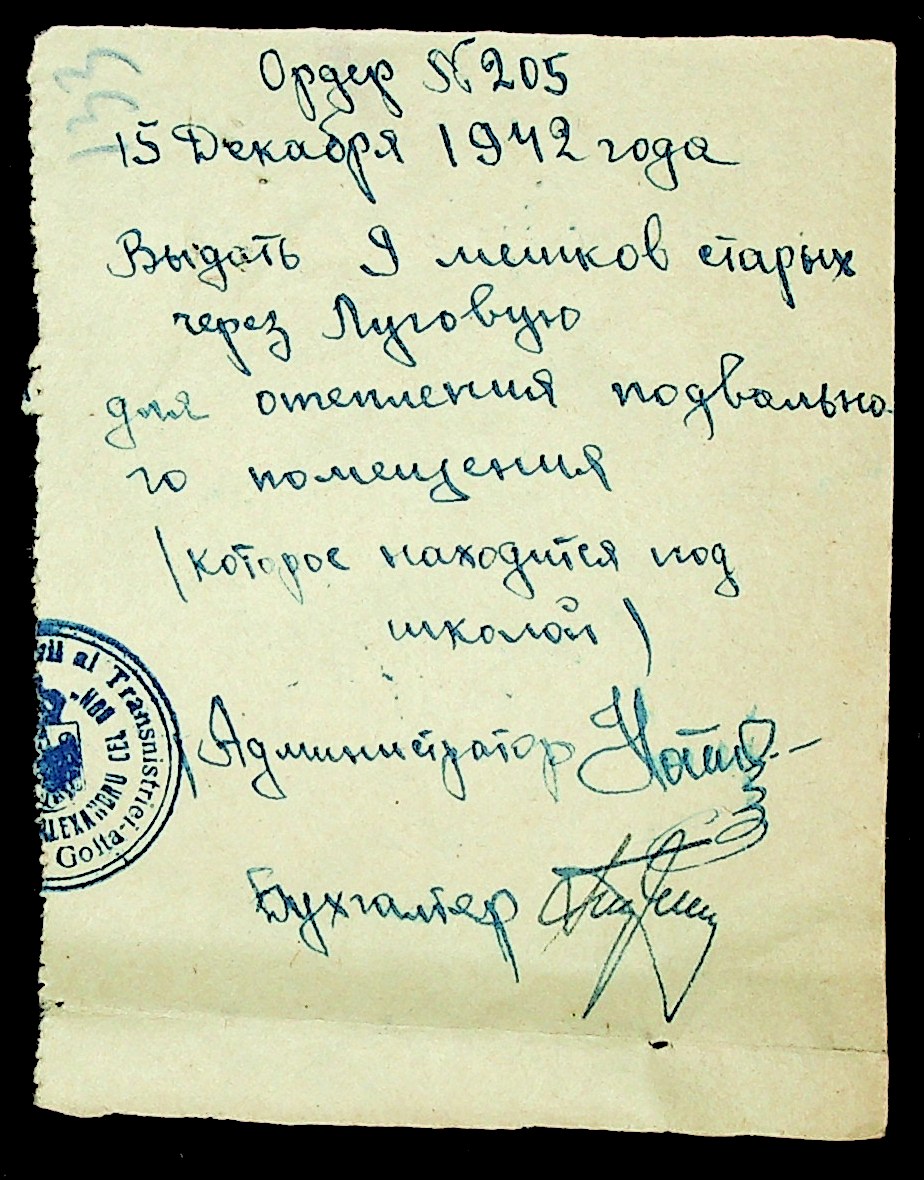 133
Ордер № 205
15 Декабря 1942 года
Выдать 9 мешков старых
через Луговую
для отепления подвально
го помещения
(которое находится под
школой)
Администратор
Бухгалтер
al Transnistriei
Golta
ALEXANDRU CEL NOU